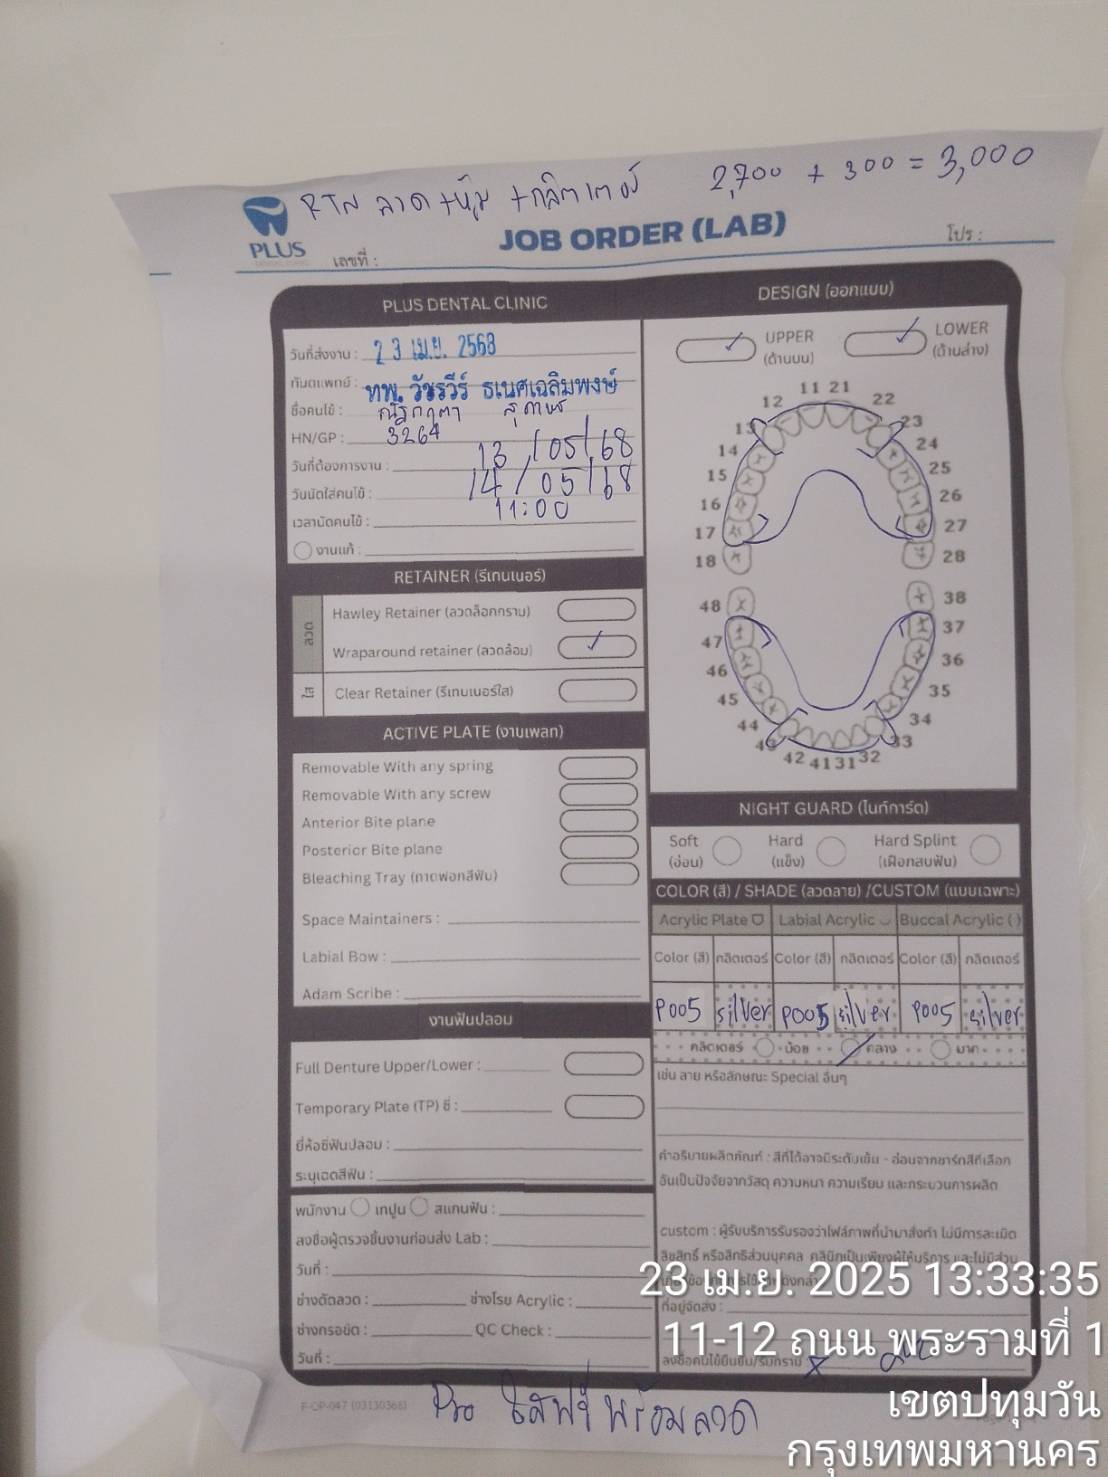 RTN ลวด +หุ้ม +กลิตเตอร์ 2,700 + 300 = 3,000
PLUS
DENTAL CLINIC
JOB ORDER (LAB)
เลขที่ :
โปร :
PLUS DENTAL CLINIC
วันที่ส่งงาน : 23 เม.ย. 2568
ทันตแพทย์ : ทพ. วัชรวีร์ ธเนศเฉลิมพงษ์
ชื่อคนไข้ :
HN/GP : 3264
วันที่ต้องการงาน : 13/05/68
วันนัดใส่คนไข้ : 14/05/68
เวลานัดคนไข้ : 11:00
งานแก้ :
RETAINER (รีเทนเนอร์)
ลวด
Hawley Retainer (ลวดล็อกกราม)
Wraparound retainer (ลวดล้อม)
ใส
Clear Retainer (รีเทนเนอร์ใส)
ACTIVE PLATE (งานเพลท)
Removable With any spring
Removable With any screw
Anterior Bite plane
Posterior Bite plane
Bleaching Tray (ถาดฟอกสีฟัน)
Space Maintainers :
Labial Bow :
Adam Scribe :
งานฟันปลอม
Full Denture Upper/Lower :
Temporary Plate (TP) ซี่ :
ยี่ห้อซี่ฟันปลอม :
ระบุเฉดสีฟัน :
พนักงาน เทปูน สแกนฟัน :
ลงชื่อผู้ตรวจชิ้นงานก่อนส่ง Lab :
วันที่ :
ช่างดัดลวด : ช่างโรย Acrylic :
ช่างกรอขัด : QC Check :
วันที่ :
DESIGN (ออกแบบ)
UPPER
(ด้านบน)
LOWER
(ด้านล่าง)
11 21
12 22
13 23
14 24
15 25
16 26
17 27
18 28
48 38
47 37
46 36
45 35
44 34
43 33
42 41 31 32
NIGHT GUARD (ไนท์การ์ด)
Soft
(อ่อน)
Hard
(แข็ง)
Hard Splint
(เฝือกสบฟัน)
COLOR (สี) / SHADE (ลวดลาย) /CUSTOM (แบบเฉพาะ)
Acrylic Plate Labial Acrylic Buccal Acrylic ( )
Color (สี) กลิตเตอร์ Color (สี) กลิตเตอร์ Color (สี) กลิตเตอร์
P005 silver P005 silver P005 silver
กลิตเตอร์ น้อย กลาง มาก
เช่น ลาย หรือลักษณะ Special อื่นๆ
คำอธิบายผลิตภัณฑ์ : สีที่ได้อาจมีระดับเข้ม - อ่อนจากชาร์ทสีที่เลือก
อันเป็นปัจจัยจากวัสดุ ความหนา ความเรียบ และกระบวนการผลิต
custom : ผู้รับบริการรับรองว่าไฟล์ภาพที่นำมาสั่งทำ ไม่มีการละเมิด
ลิขสิทธิ์ หรือสิทธิส่วนบุคคล คลินิกเป็นเพียงผู้ให้บริการ และไม่มีส่วน
ที่อยู่จัดส่ง :
ลงชื่อคนไข้ยืนยัน/รับทราบ x
F-OP-047 (03130368)
Pro ใสฟรี พร้อมลวด
23 เม.ย. 2025 13:33:35
11-12 ถนน พระรามที่ 1
เขตปทุมวัน
กรุงเทพมหานคร